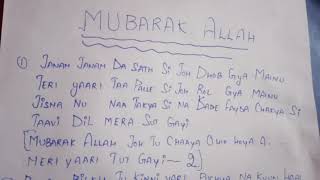 MUBARAK ALLAH
① JANAM JANAM DA SATH SI JOH DHOB GYA MAINU
TERI YAARI TAA PALLE SI JOH ROL GYA MAINU
JISNA NU NAA TAKYA SI NA KADE FAYDA CHAKYA SI
TAAVI DIL MERA SUT GAYI
[MUBARAK ALLAH JOH TU CHAAYA OHIO HOYA A.
MERI YAARI TUT GAYI ~ 2]
TU KINNI VARI NA KUJH HALE